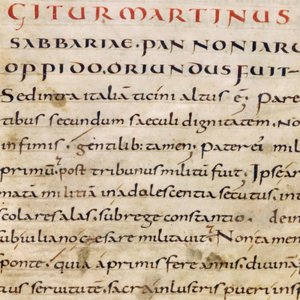 GITUR MARTINUS
SABBARIAE. PANNONIARU
OPPIDO. ORIUNDUS FUIT-
Sedintra italiā ticini altus ē; Pare
tibus secundum saeculi dignitatem. No
infimis, gentilib; tamen. Pater ei mil
primū, post tribunus militū fuit. Ipse ar
matā militiā in adolescentia secutus, int
scolares alas, sub rege constantio, dein
sub iuliano cęsare militauit. Non tamen
sponte. quia a primis fere annis, diuinā
ius seruitute, sacra inlustris pueri ins